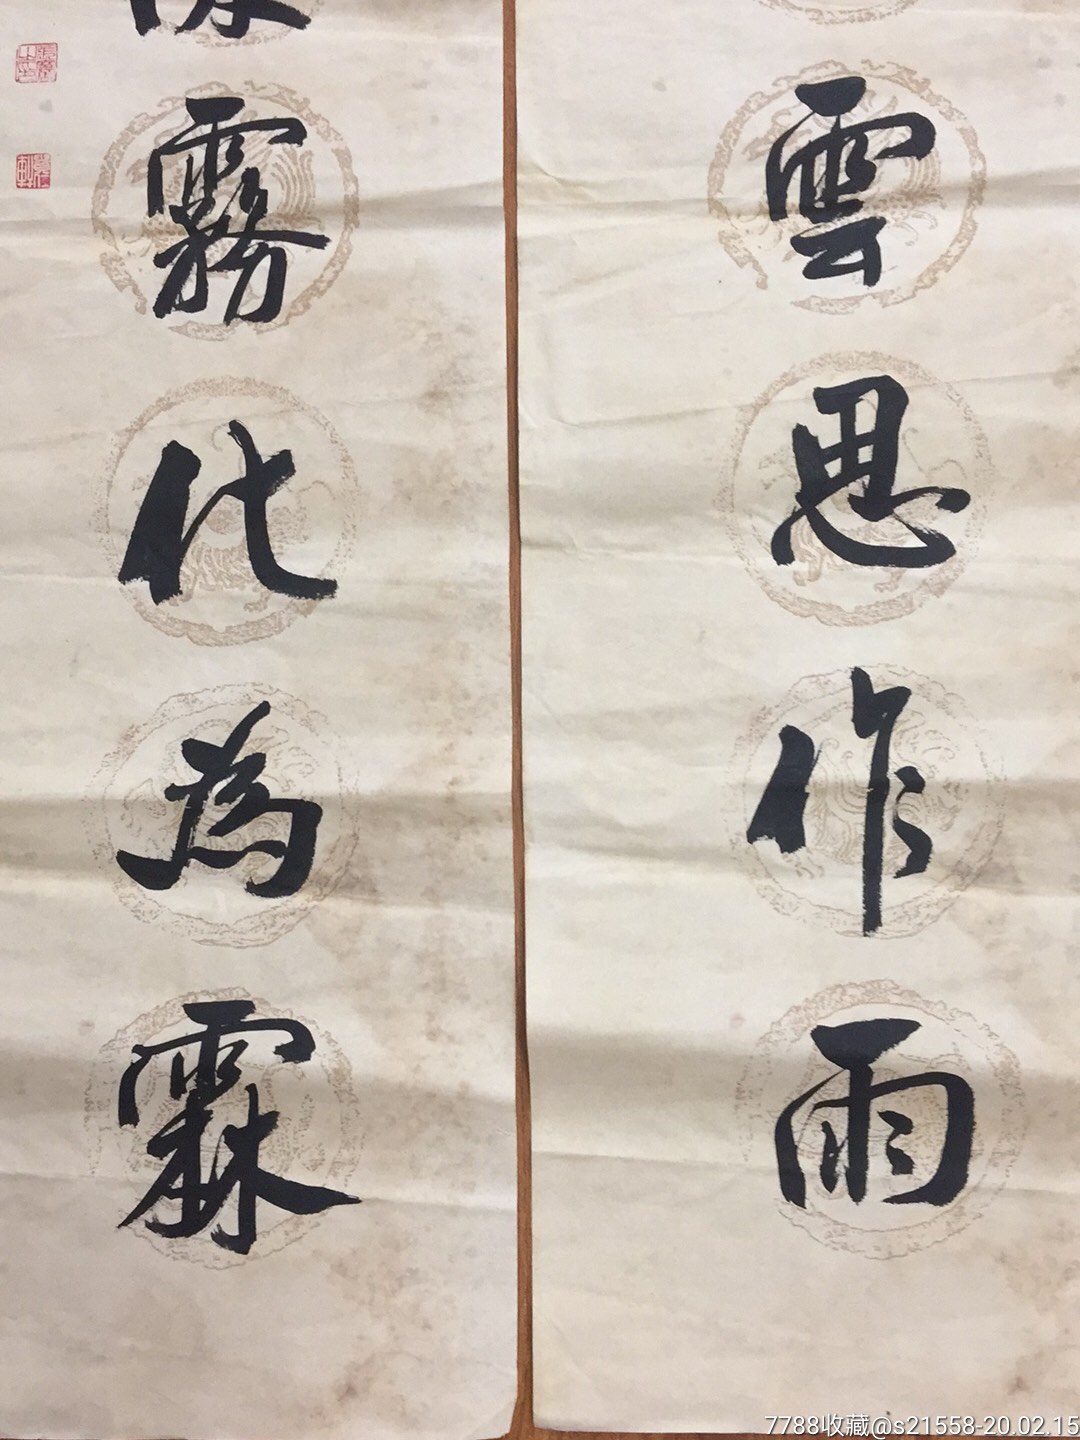 雲思作雨
霧化為霖
7788收藏@s21558-20.02.15